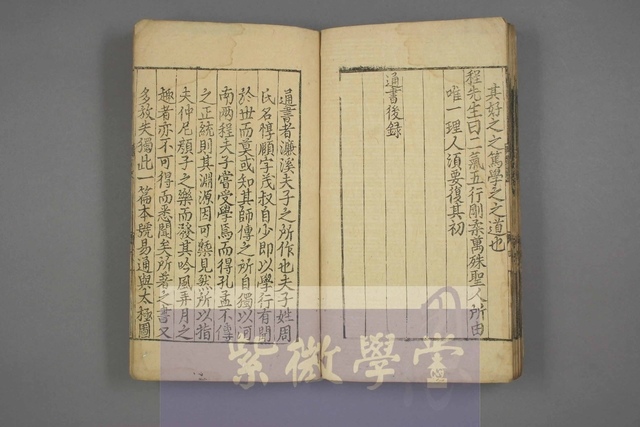 其好之之篤學之之道也
程先生曰二氣五行剛柔萬殊聖人所由
唯一理人須要復其初
通書後録
通書者濂溪夫子之所作也夫子姓周
氏名惇頤字茂叔自少即以學行有聞
於世而莫或知其師傳之所自獨以河
南兩程夫子嘗受學焉而得孔孟不傳
之正統則其淵源因可槩見然所以指
夫仲尼顔子之樂而發其吟風弄月之
趣者亦不可得而悉聞矣所著之書又
多放失獨此一篇本號易通與太極圖
紫微學堂